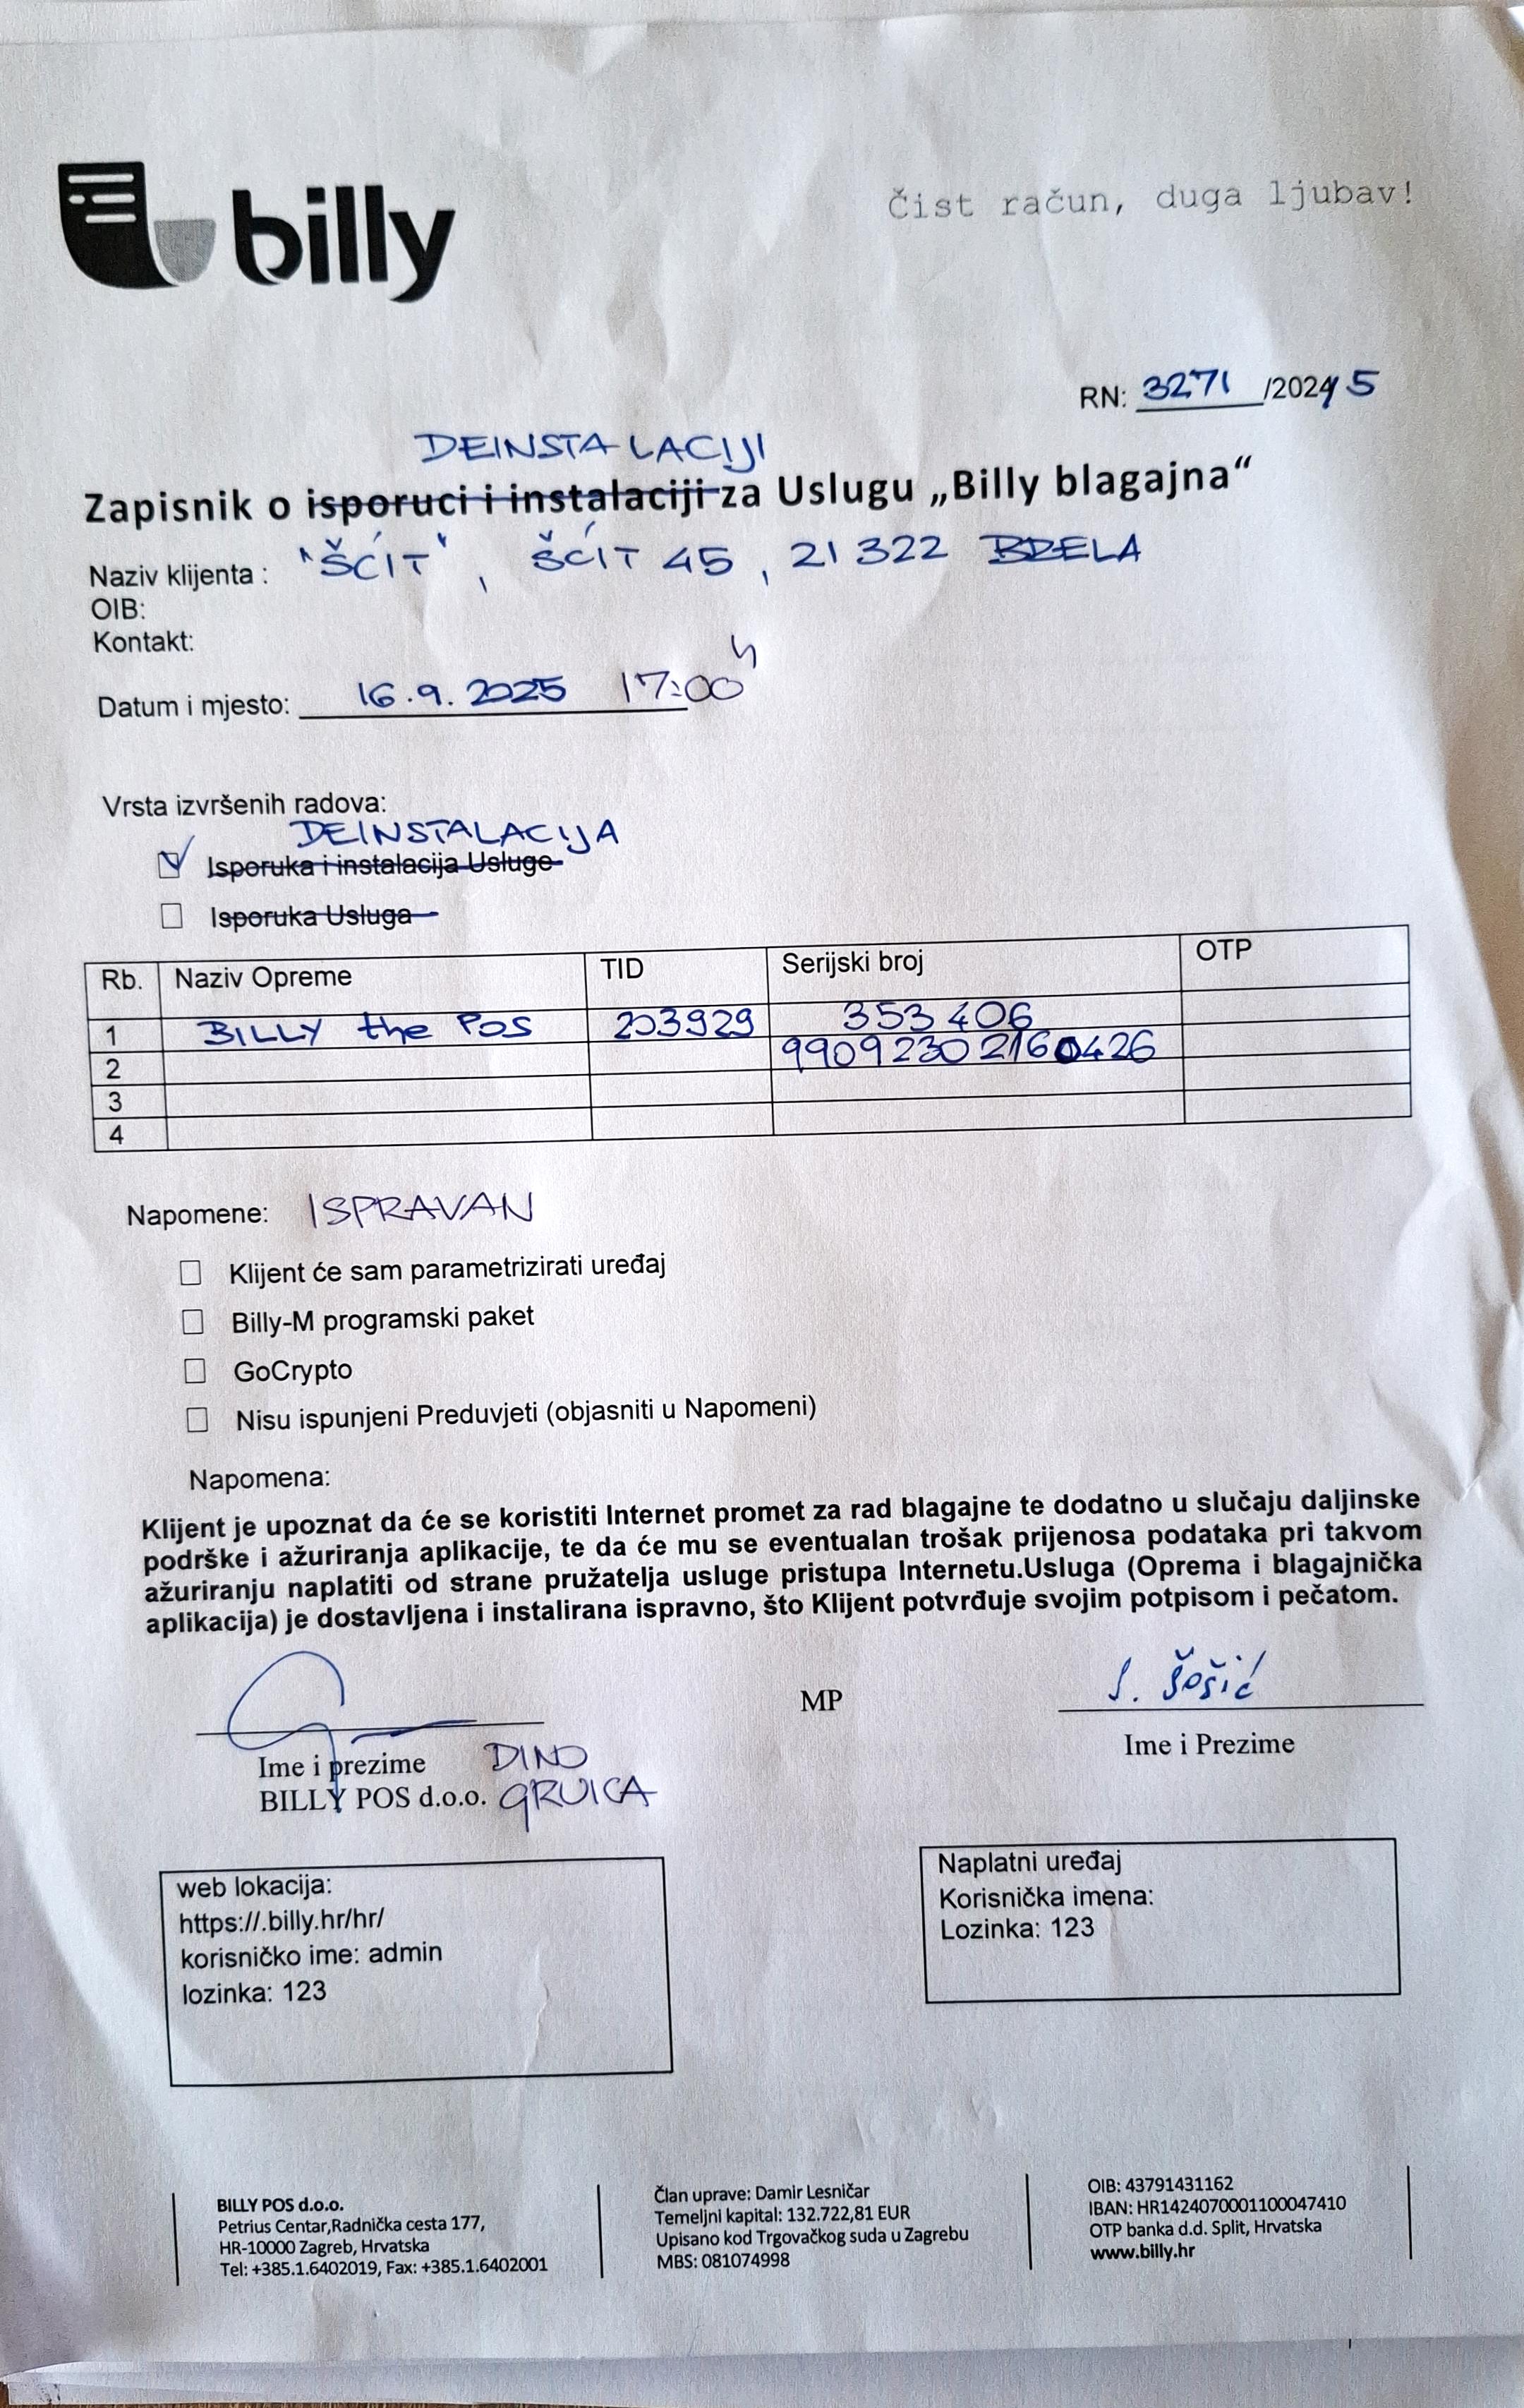 billy
Čist račun, duga ljubav!
RN: 3271 /2024 5
DEINSTALACIJI
Zapisnik o isporuci i instalaciji za Uslugu „Billy blagajna“
Naziv klijenta : "ŠĆIT", ŠĆIT 45, 21322 BRELA
OIB:
Kontakt:
Datum i mjesto: 16.9.2025 17:00 h
Vrsta izvršenih radova:
DEINSTALACIJA
Isporuka i instalacija Usluge
Isporuka Usluga
Rb. Naziv Opreme TID Serijski broj OTP
1 BILLY the POS 203929 353406
2 99092302160426
3
4
Napomene: ISPRAVAN
Klijent će sam parametrizirati uređaj
Billy-M programski paket
GoCrypto
Nisu ispunjeni Preduvjeti (objasniti u Napomeni)
Napomena:
Klijent je upoznat da će se koristiti Internet promet za rad blagajne te dodatno u slučaju daljinske
podrške i ažuriranja aplikacije, te da će mu se eventualan trošak prijenosa podataka pri takvom
ažuriranju naplatiti od strane pružatelja usluge pristupa Internetu.Usluga (Oprema i blagajnička
aplikacija) je dostavljena i instalirana ispravno, što Klijent potvrđuje svojim potpisom i pečatom.
MP
Šošić
Ime i prezime DINO
BILLY POS d.o.o. GRUICA
Ime i Prezime
web lokacija:
https://.billy.hr/hr/
korisničko ime: admin
lozinka: 123
Naplatni uređaj
Korisnička imena:
Lozinka: 123
BILLY POS d.o.o.
Petrius Centar,Radnička cesta 177,
HR-10000 Zagreb, Hrvatska
Tel: +385.1.6402019, Fax: +385.1.6402001
Član uprave: Damir Lesničar
Temeljni kapital: 132.722,81 EUR
Upisano kod Trgovačkog suda u Zagrebu
MBS: 081074998
OIB: 43791431162
IBAN: HR1424070001100047410
OTP banka d.d. Split, Hrvatska
www.billy.hr